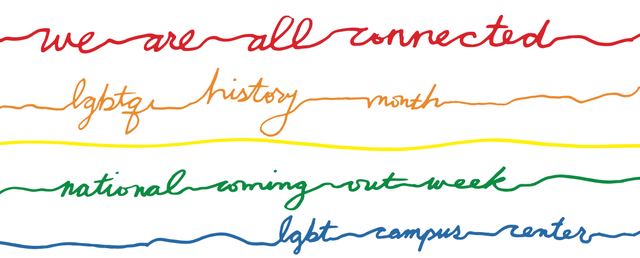 we are all connected
lgbtq history month
national coming out week
lgbt campus center